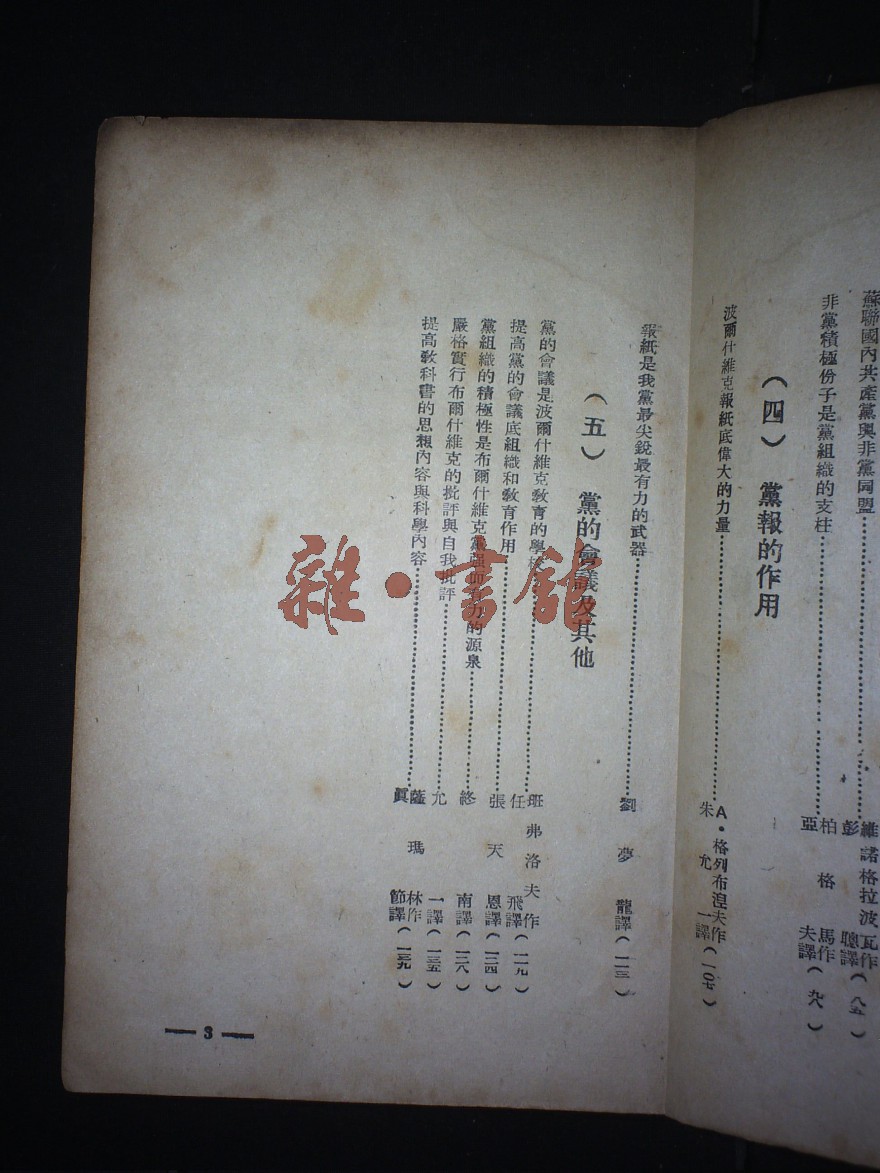 蘇聯國內共產黨與非黨同盟……維諾格拉波瓦作
彭 聰譯(八五)
非黨積極份子是黨組織的支柱……柏格馬作
亞 夫譯(九八)
(四) 黨報的作用
波爾什維克報紙底偉大的力量……A·格列布湼夫作
朱允一譯(一〇七)
報紙是我黨最尖銳最有力的武器……劉夢龍譯(一一三)
(五) 黨的會議及其他
黨的會議是波爾什維克教育的學校……班弗洛夫作
任飛譯(一一九)
提高黨的會議底組織和教育作用……張天恩譯(一二四)
黨組織的積極性是布爾什維克黨強而有力的源泉……終南譯(一二八)
嚴格實行布爾什維克的批評與自我批評……允一譯(一三五)
提高教科書的思想內容與科學內容……薩瑪林作
眞 節譯(一三九)
— 3 —
雜·書館